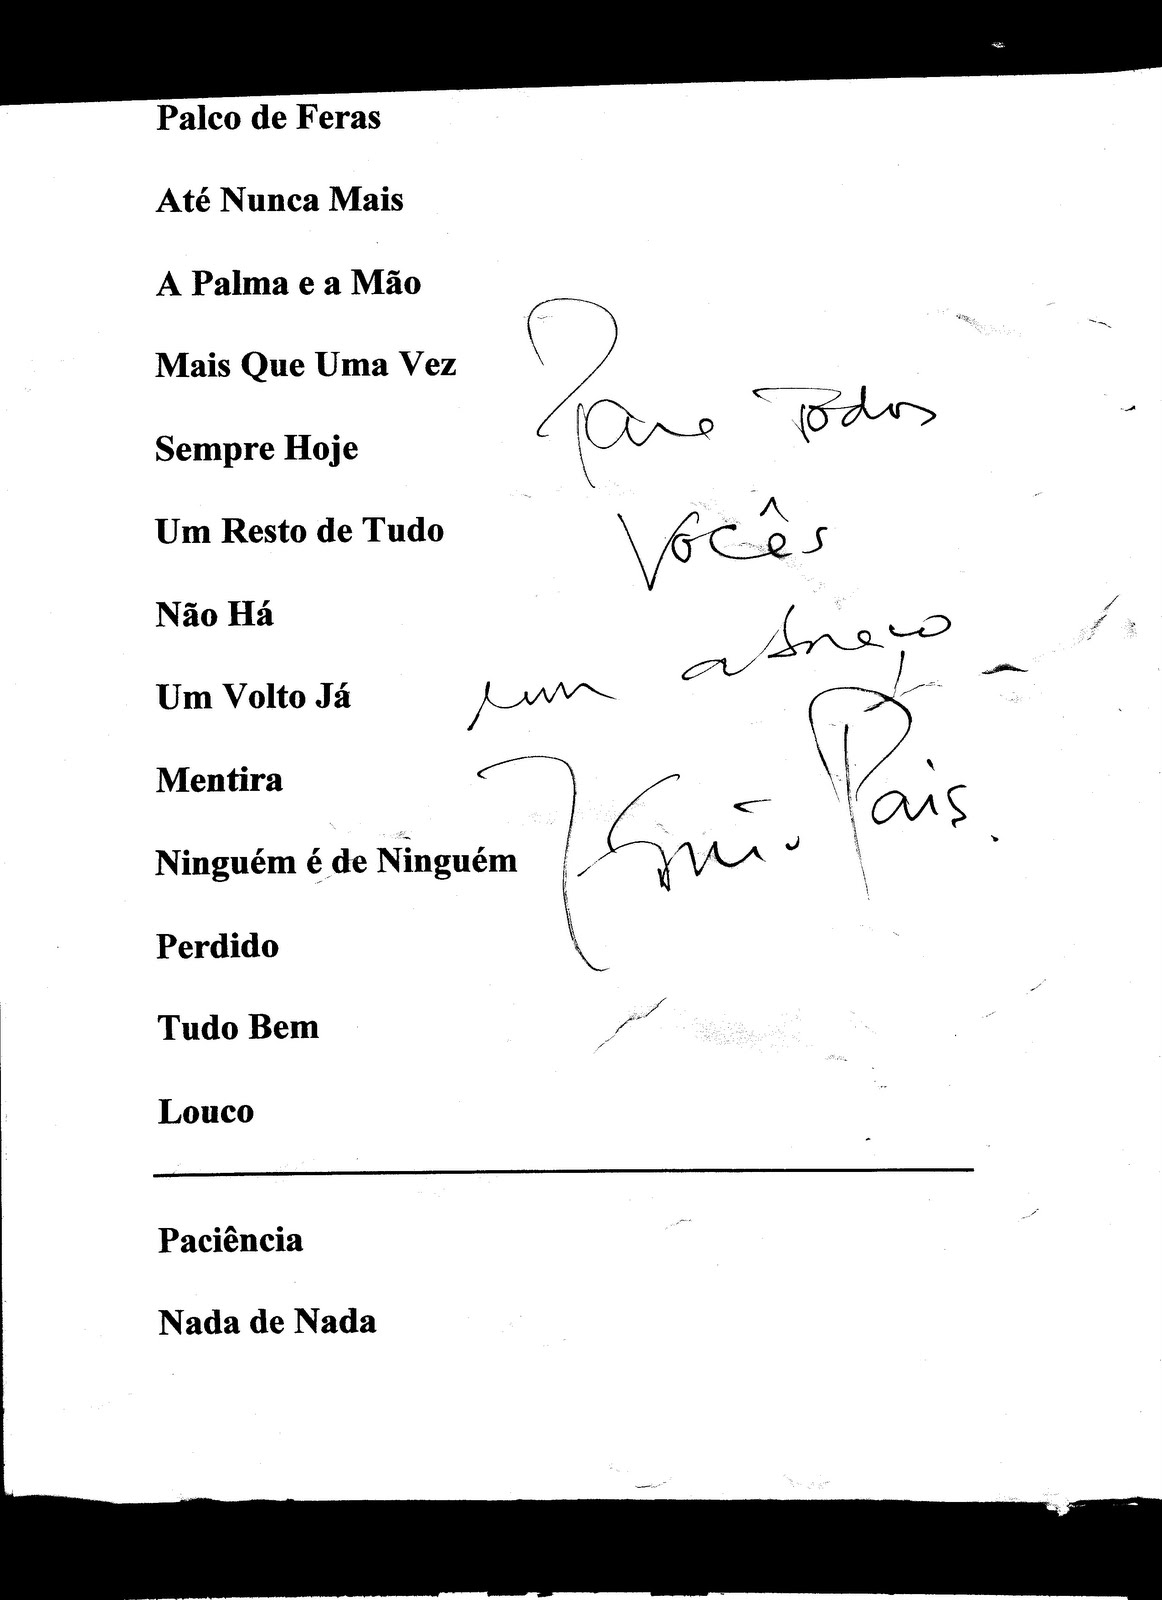 Palco de Feras
Até Nunca Mais
A Palma e a Mão
Mais Que Uma Vez
Sempre Hoje
Um Resto de Tudo
Não Há
Um Volto Já
Mentira
Ninguém é de Ninguém
Perdido
Tudo Bem
Louco
Paciência
Nada de Nada
Para Todos
Vocês
um abraço
Pais.